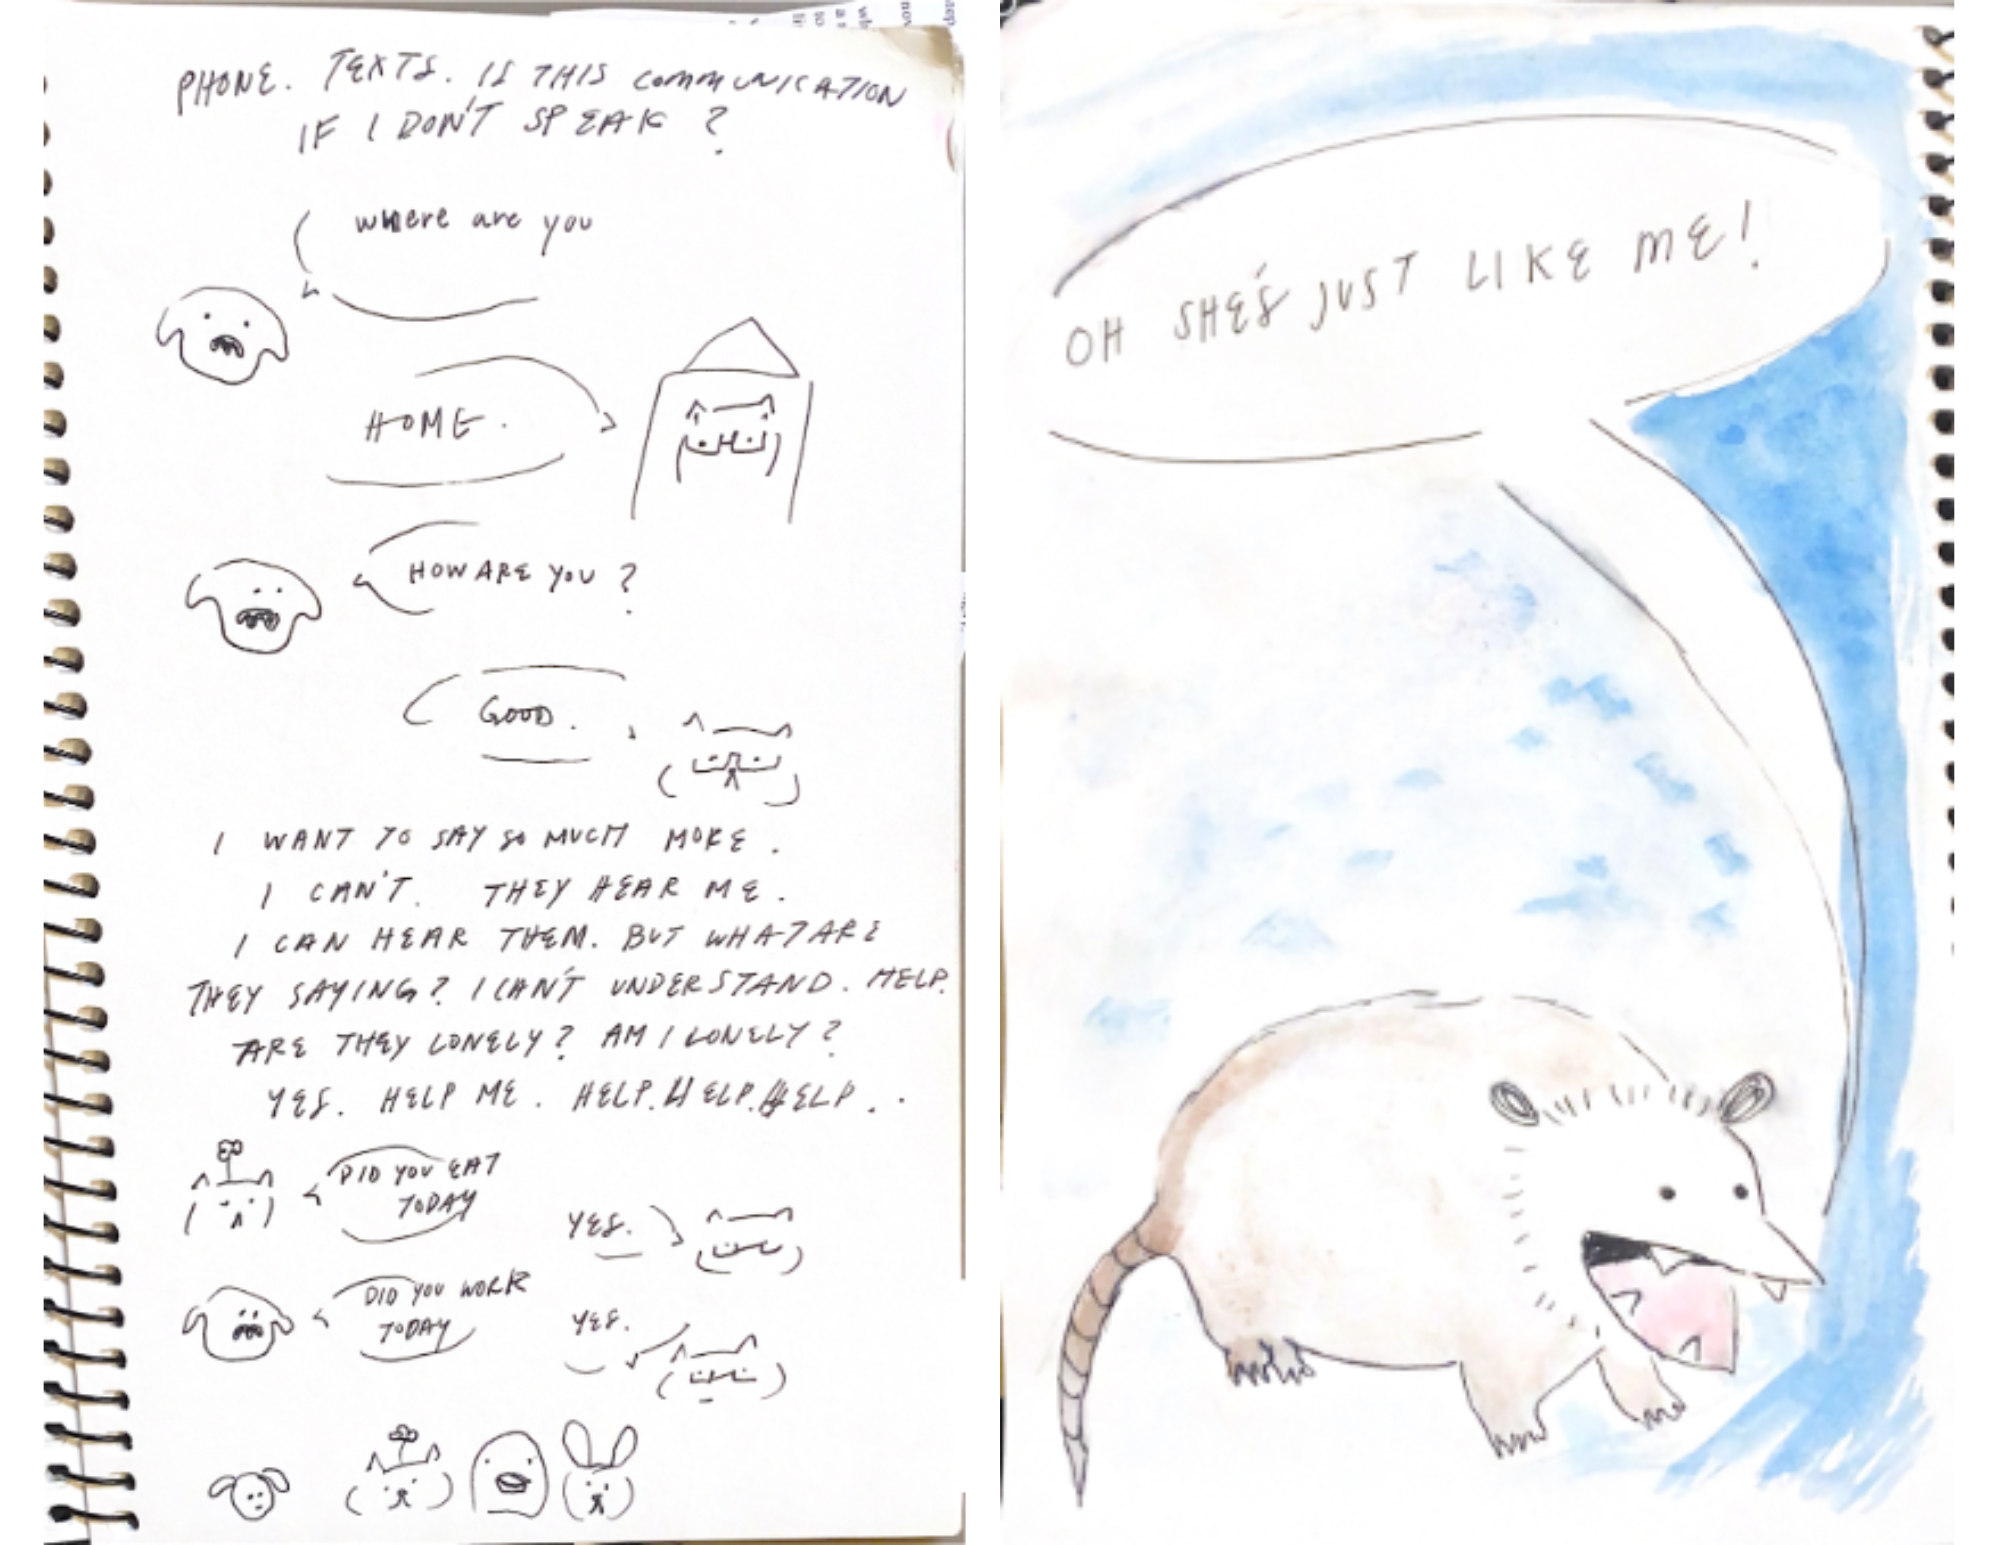 PHONE. TEXTS. IS THIS COMMUNICATION
IF I DON'T SPEAK?
where are you
HOME.
HOW ARE YOU?
GOOD.
I WANT TO SAY SO MUCH MORE.
I CAN'T. THEY HEAR ME.
I CAN HEAR THEM. BUT WHAT ARE
THEY SAYING? I CAN'T UNDERSTAND. HELP.
ARE THEY LONELY? AM I LONELY?
YES. HELP ME. HELP. HELP. HELP..
DID YOU EAT
TODAY
YES.
DID YOU WORK
TODAY
YES.
OH SHE'S JUST LIKE ME!